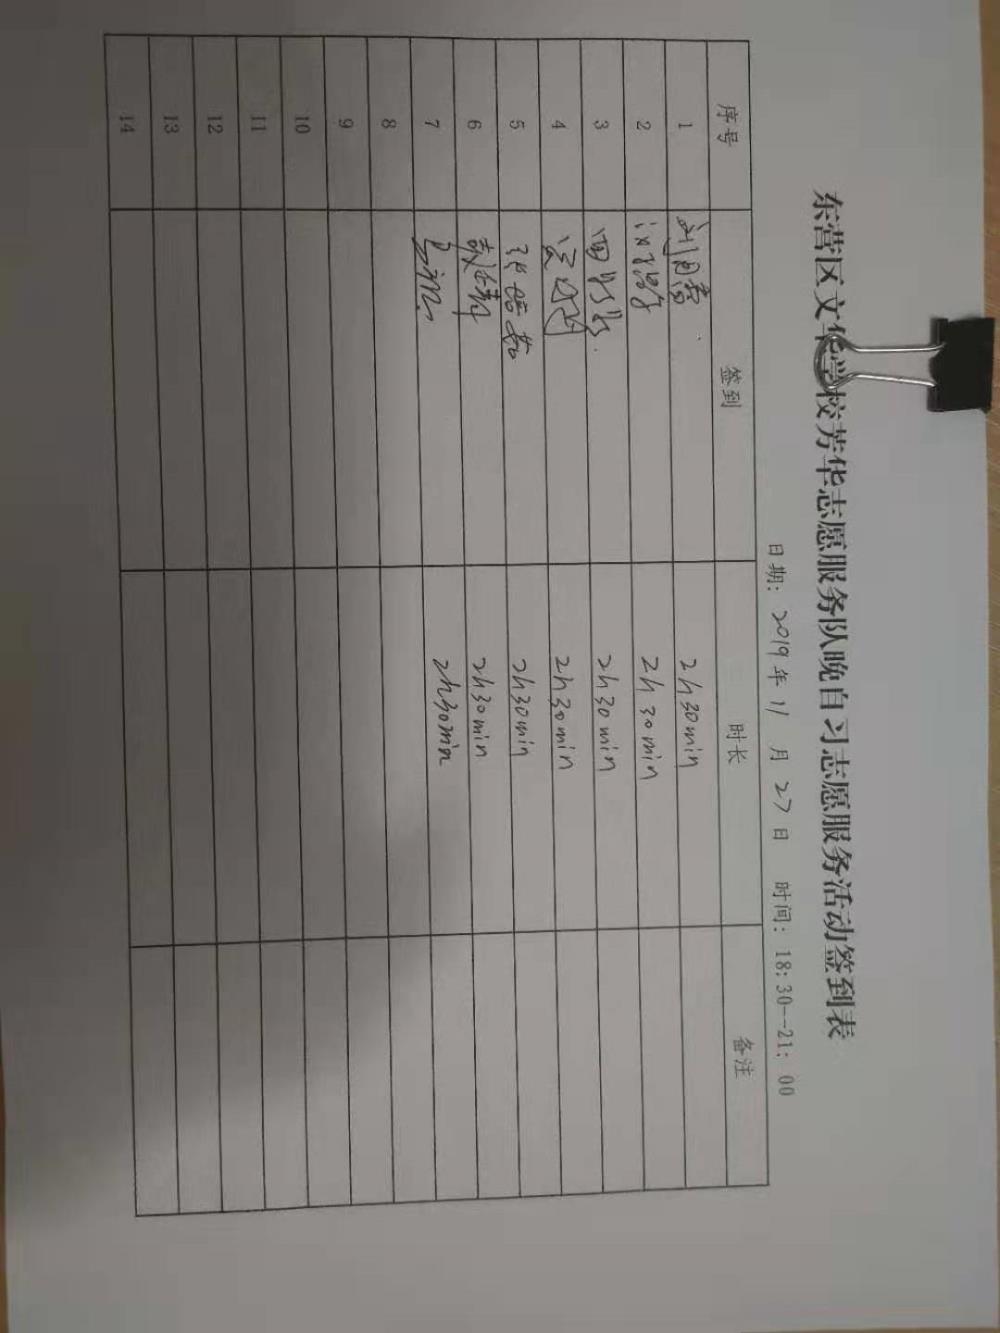 东营区文华学校芳华志愿服务队晚自习志愿服务活动签到表
日期: 2019年 11 月 27 日 时间: 18:30--21: 00
序号 签到 时长 备注
1 2h30min
2 2h30min
3 2h30min
4 2h30min
5 2h30min
6 2h30min
7 2h30min
8
9
10
11
12
13
14